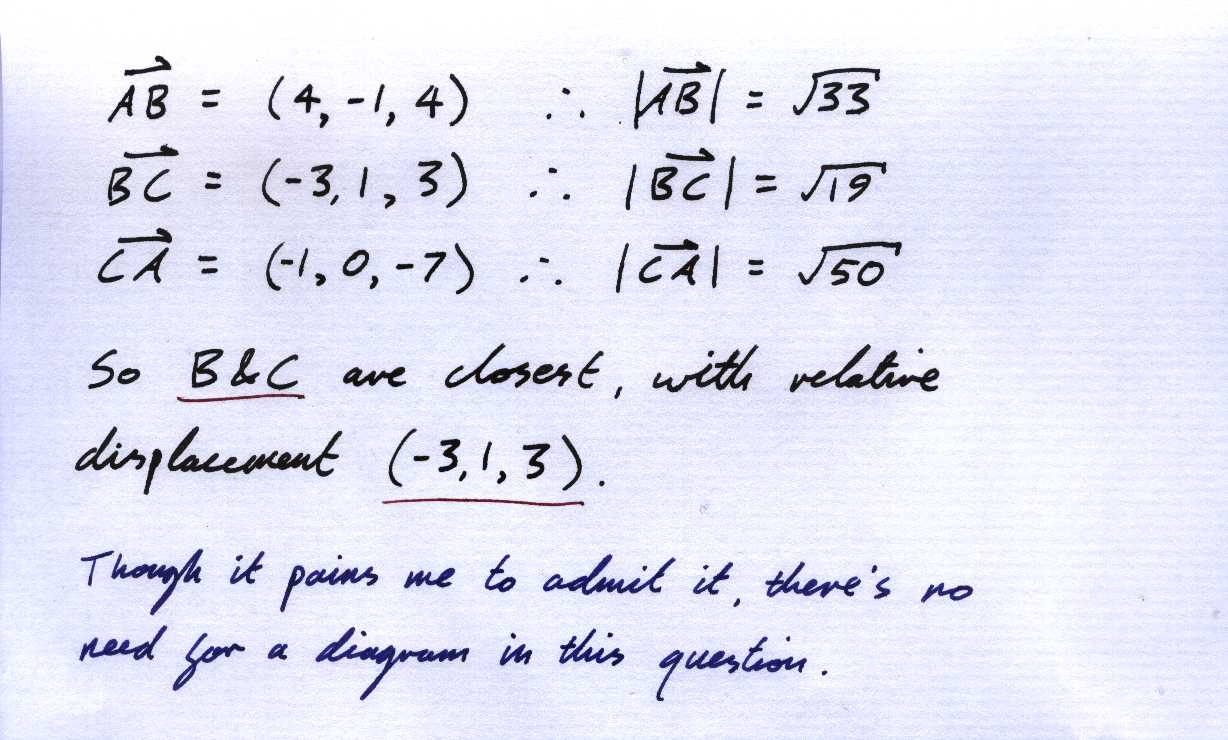 AB⃗ = (4, -1, 4) ∴ |AB⃗| = √33
BC⃗ = (-3, 1, 3) ∴ |BC⃗| = √19
CA⃗ = (-1, 0, -7) ∴ |CA⃗| = √50
So B & C are closest, with relative
displacement (-3, 1, 3).
Though it pains me to admit it, there's no
need for a diagram in this question.